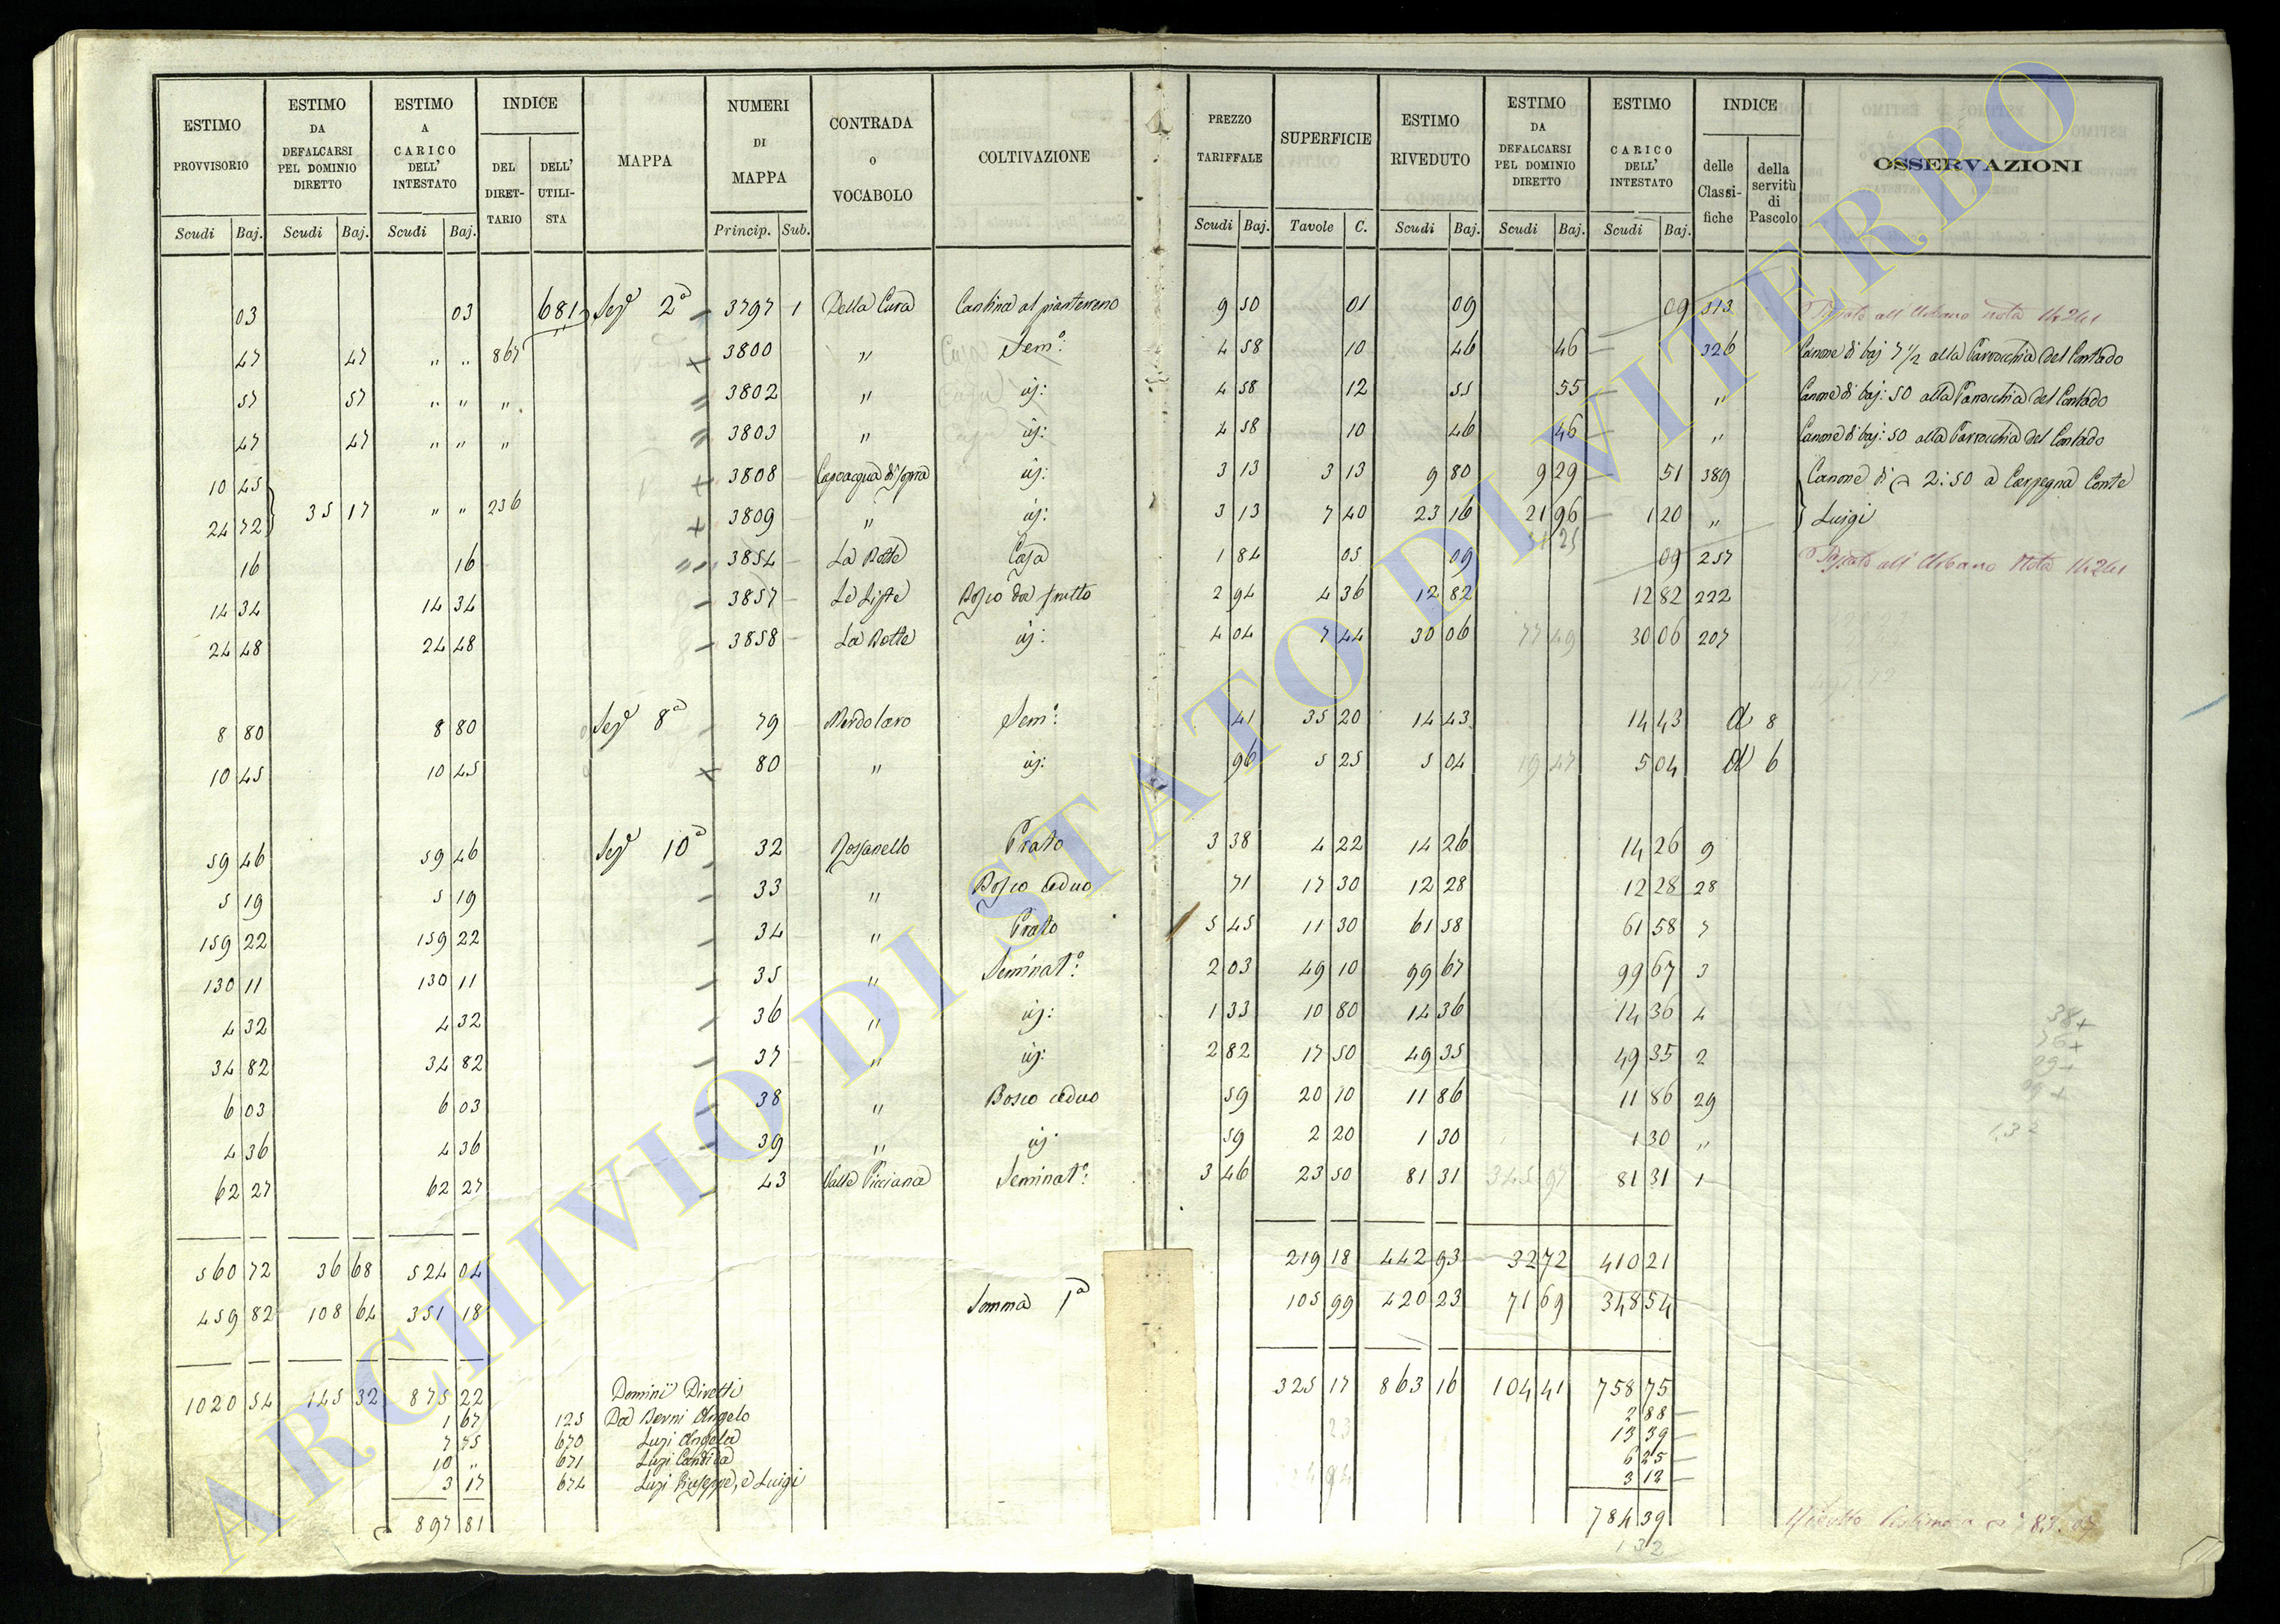 ESTIMO PROVVISORIO | ESTIMO DA DEFALCARSI PEL DOMINIO DIRETTO | ESTIMO A CARICO DELL' INTESTATO | INDICE | MAPPA | NUMERI DI MAPPA | CONTRADA O VOCABOLO | COLTIVAZIONE | PREZZO TARIFFALE | SUPERFICIE | ESTIMO RIVEDUTO | ESTIMO DA DEFALCARSI PEL DOMINIO DIRETTO | ESTIMO A CARICO DELL' INTESTATO | INDICE | OSSERVAZIONI
DEL DIRET-TARIO | DELL' UTILI-STA | delle Classi-fiche | della servitù di Pascolo
Scudi | Baj. | Scudi | Baj. | Scudi | Baj. | Princip. | Sub. | Scudi | Baj. | Tavole | C. | Scudi | Baj. | Scudi | Baj. | Scudi | Baj.
03 | 03 | 681 | Sezẽ 2ª | 3797 | 1 | Della Cura | Cantina al pianterreno | 9 50 | 01 | 09 | 09 | 313 | Passato all' Urbano nota
47 | 47 | " " | 867 | 3800 | " | Semº: | 4 58 | 10 | 46 | 46 | 326 | Canone di baj 7 1/2 alla Parrocchia del Contado
57 | 57 | " " | " | 3802 | " | id: | 4 58 | 12 | 55 | 55 | " | Canone di baj: 50 alla Parrocchia del Contado
47 | 47 | " " | " | 3803 | " | id: | 4 58 | 10 | 46 | 46 | " | Canone di baj: 50 alla Parrocchia del Contado
10 45 | 3808 | Capoacqua di sopra | id: | 3 13 | 3 13 | 9 80 | 9 29 | 51 | 389 | Canone di 2:50 a Carpegna Conte
24 72 | 35 17 | " " | 236 | 3809 | " | id: | 3 13 | 7 40 | 23 16 | 21 96 | 1 20 | " | Luigi
31 25
16 | 16 | 3854 | La Botte | Casa | 1 84 | 05 | 09 | 09 | 257 | Passato all' Urbano Nota
14 34 | 14 34 | 3857 | Le Liste | Bosco da frutto | 2 94 | 4 36 | 12 82 | 12 82 | 222
24 48 | 24 48 | 3858 | La Botte | id: | 4 04 | 7 44 | 30 06 | 77 49 | 30 06 | 207
8 80 | 8 80 | Sezẽ 8ª | 79 | Merdolaro | Semº: | 41 | 35 20 | 14 43 | 14 43 | 8
10 45 | 10 45 | 80 | " | id: | 96 | 5 25 | 5 04 | 19 47 | 5 04 | 6
59 46 | 59 46 | Sezẽ 10ª | 32 | Rossanello | Prato | 3 38 | 4 22 | 14 26 | 14 26 | 9
5 19 | 5 19 | 33 | " | Bosco ceduo | 71 | 17 30 | 12 28 | 12 28 | 28
159 22 | 159 22 | 34 | " | Prato | 5 45 | 11 30 | 61 58 | 61 58 | 7
130 11 | 130 11 | 35 | " | Seminatº: | 2 03 | 49 10 | 99 67 | 99 67 | 3
4 32 | 4 32 | 36 | " | id: | 1 33 | 10 80 | 14 36 | 14 36 | 4
34 82 | 34 82 | 37 | " | id: | 2 82 | 17 50 | 49 35 | 49 35 | 2
6 03 | 6 03 | 38 | " | Bosco ceduo | 59 | 20 10 | 11 86 | 11 86 | 29
4 36 | 4 36 | 39 | " | id: | 59 | 2 20 | 1 30 | 1 30 | "
62 27 | 62 27 | 43 | Valle Picciana | Seminatº: | 3 46 | 23 50 | 81 31 | 345 97 | 81 31 | 1
560 72 | 36 68 | 524 04 | 219 18 | 442 93 | 32 72 | 410 21
459 82 | 108 64 | 351 18 | Somma 1ª | 105 99 | 420 23 | 71 69 | 348 54
1020 54 | 145 32 | 875 22 | Dominii Diretti | 325 17 | 863 16 | 104 41 | 758 75
1 67 | 125 | Da Berni Angelo | 2 88
7 75 | 670 | Luzi Angela | 13 39
10 " | 671 | Luzi Candida | 6 25
3 17 | 674 | Luzi Giuseppe, e Luigi | 3 12
897 81 | 784 39 | 783.07
1 32
38+
76+
09+
09+
1,32
ARCHIVIO DI STATO DI VITERBO